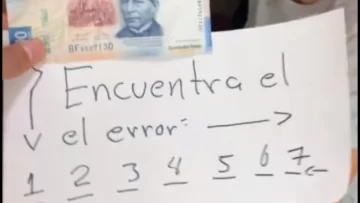 Encuentra el
el error:
1 2 3 4 5 6 7